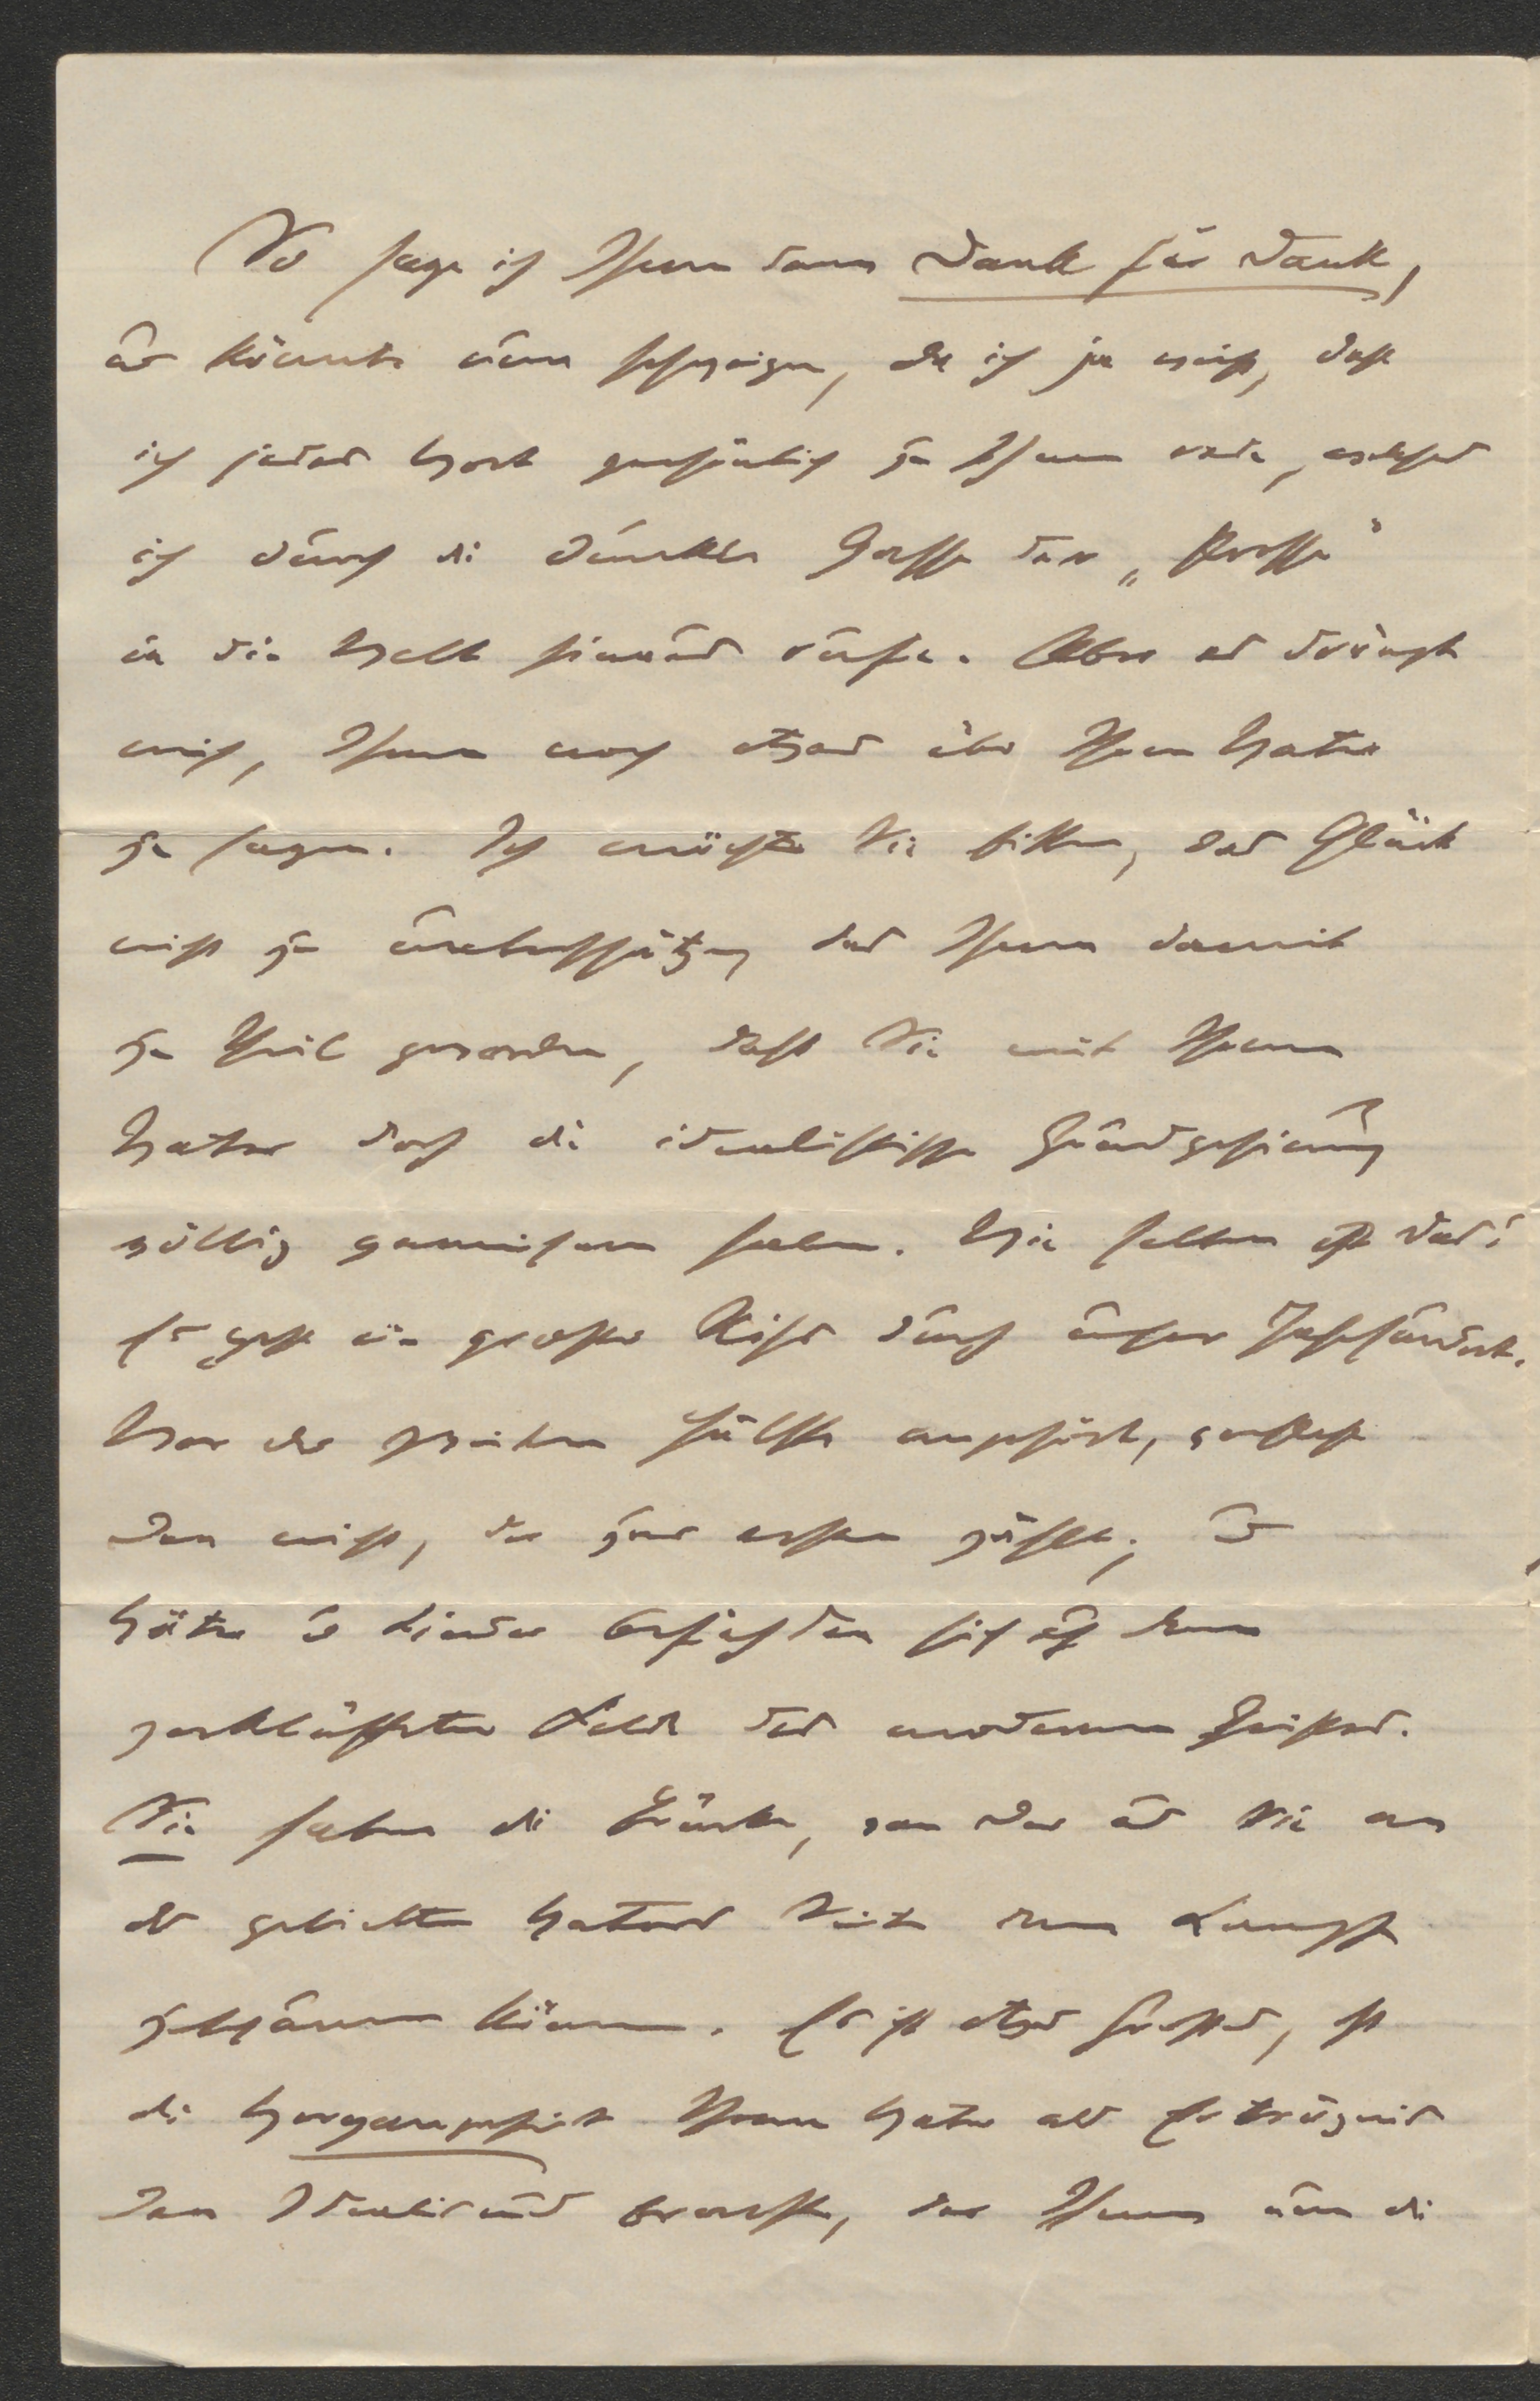 So sage ich Ihnen denn Dank für Dank,
u. könnte nun schweigen, da ich ja weiß, daß
ich jedes Wort persönlich zu Ihnen rede, welches
ich durch die dunkle Gasse der „Presse“
in die Welt hinaus rufe. Aber es drängt
mich, Ihnen noch etwas über Ihren Vater
zu sagen. Ich möchte Sie bitten, das Glück
nicht zu unterschätzen, das Ihnen damit
zu Theil geworden, daß Sie mit Ihrem
Vater doch die idealistische Grundgesinnung
völlig gemeinsam haben. Wie selten ist das!
Es geht ein großer Riß durch unser Jahrhundert.
Wer der zweiten Hälfte angehört, versteht
den nicht, der zur ersten zählt; u.
Väter u. Kinder bekriegen sich auf dem
zerklüfteten Felde des modernen Geistes.
Sie haben die Brücke, von der aus Sie an
der geliebten Vaters Seite zum Kampf
hinaus können. Es ist etwas Großes, ist
die Vergangenheit Ihrem Vater als Erträgnis
den Idealismus brachte, der Ihnen nun die